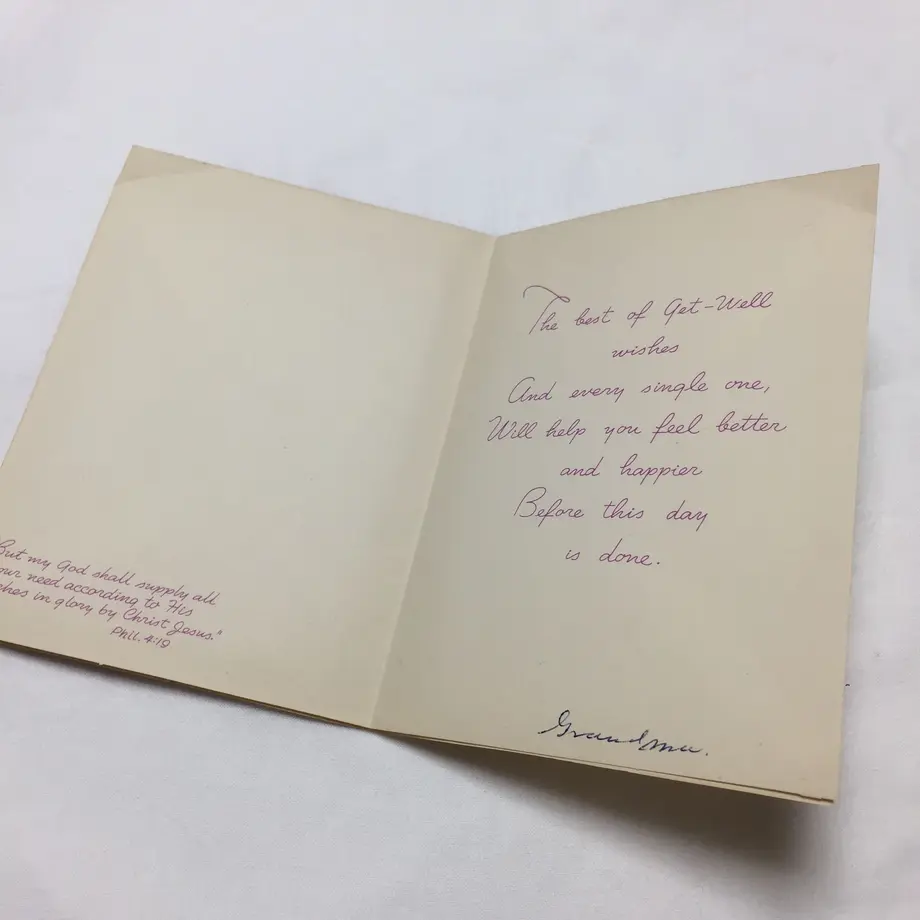 But my God shall supply all
our need according to His
ches in glory by Christ Jesus."
Phil. 4:19
The best of Get-Well
wishes
And every single one,
Will help you feel better
and happier
Before this day
is done.
Grandma.